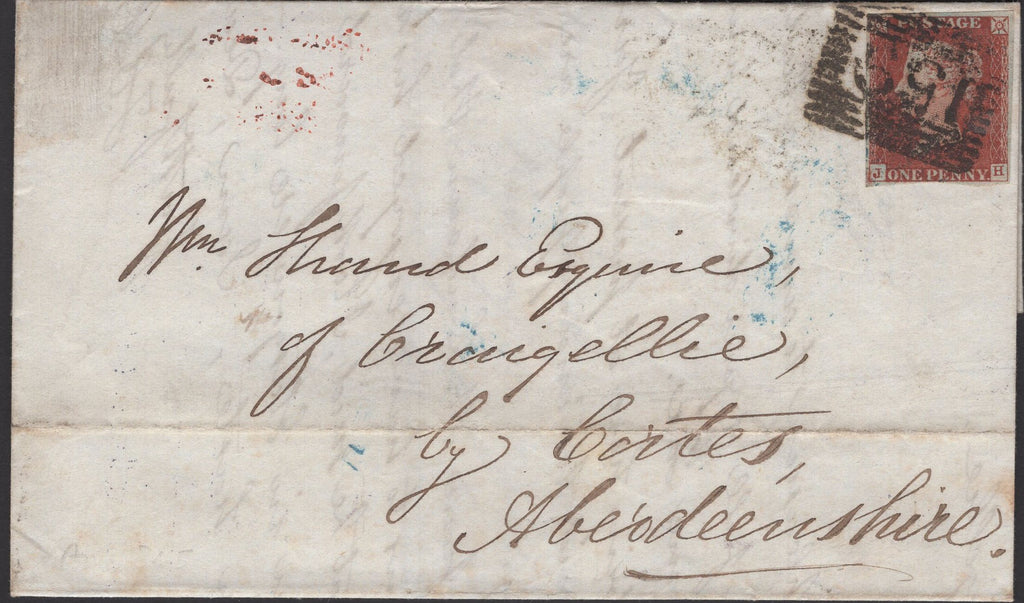 POSTAGE
J ONE PENNY H
Wm. Shand Esquire,
of Craigellie,
by Cortes,
Aberdeenshire.